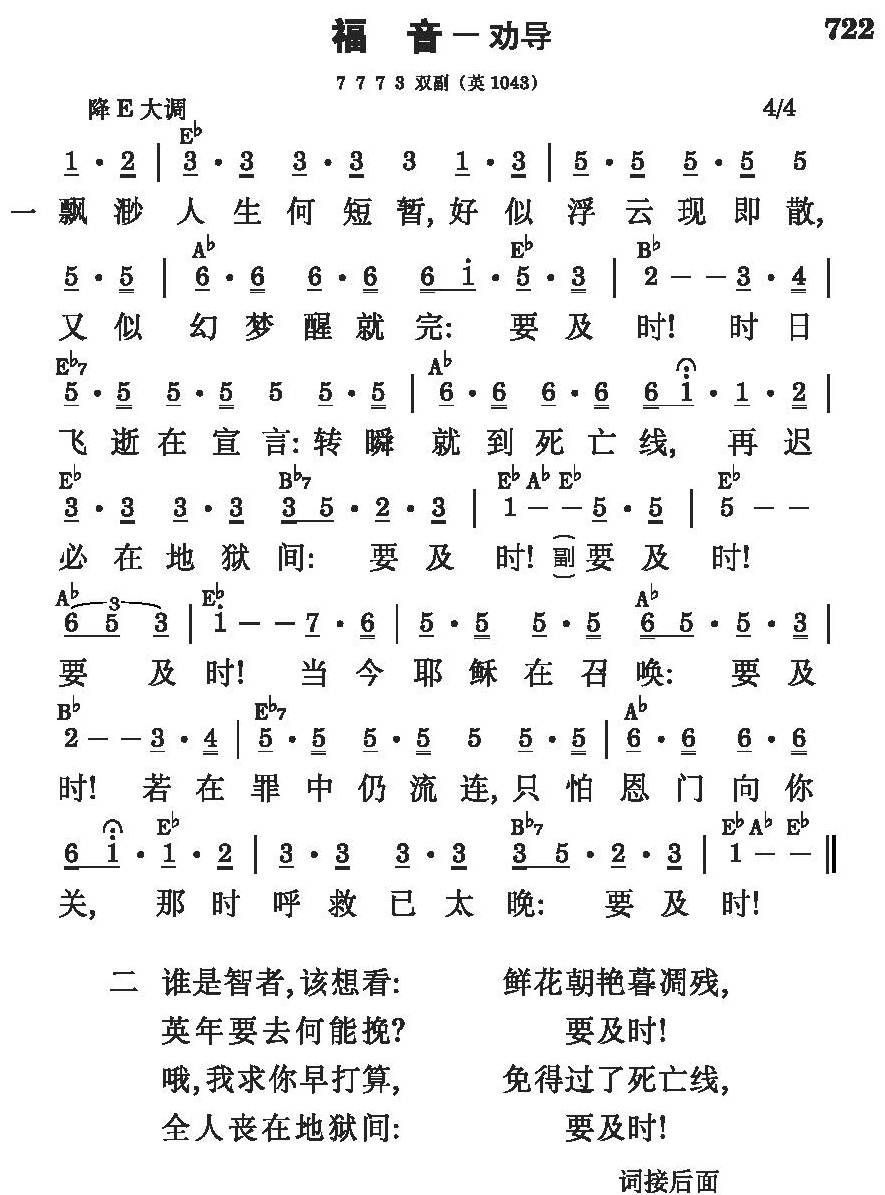 福 音－劝导 722
7 7 7 3 双副（英 1043）
降 E 大调 4/4
E♭
1 · 2 | 3 · 3 3 · 3 3 1 · 3 | 5 · 5 5 · 5 5
一 飘 渺 人 生 何 短 暂, 好 似 浮 云 现 即 散,
A♭ E♭ B♭
5 · 5 | 6 · 6 6 · 6 6 i · 5 · 3 | 2 － － 3 · 4 |
又 似 幻 梦 醒 就 完: 要 及 时! 时 日
E♭7 A♭
5 · 5 5 · 5 5 5 · 5 | 6 · 6 6 · 6 6 i · 1 · 2 |
飞 逝 在 宣 言: 转 瞬 就 到 死 亡 线, 再 迟
E♭ B♭7 E♭ A♭ E♭ E♭
3 · 3 3 · 3 3 5 · 2 · 3 | 1 － － 5 · 5 | 5 － －
必 在 地 狱 间: 要 及 时! (副) 要 及 时!
A♭ 3 E♭ A♭
6 5 3 | i － － 7 · 6 | 5 · 5 5 · 5 6 5 · 5 · 3 |
要 及 时! 当 今 耶 稣 在 召 唤: 要 及
B♭ E♭7 A♭
2 － － 3 · 4 | 5 · 5 5 · 5 5 5 · 5 | 6 · 6 6 · 6
时! 若 在 罪 中 仍 流 连, 只 怕 恩 门 向 你
E♭ B♭7 E♭ A♭ E♭
6 i · 1 · 2 | 3 · 3 3 · 3 3 5 · 2 · 3 | 1 － － ‖
关, 那 时 呼 救 已 太 晚: 要 及 时!
二 谁是智者, 该想看: 鲜花朝艳暮凋残,
英年要去何能挽? 要及时!
哦, 我求你早打算, 免得过了死亡线,
全人丧在地狱间: 要及时!
词接后面